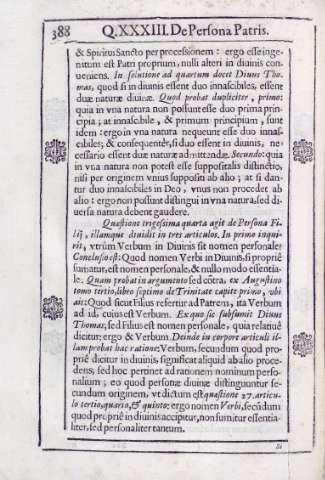 388 Q.XXXIII. De Persona Patris.
& Spiritus Sancto per processionem: ergo esse inge-
nitum est Patri proprium, nulli alteri in diuinis con-
ueniens. In solutione ad quartum docet Diuus Tho-
mas, quod si in diuinis essent duo innascibiles, essent
duæ naturæ diuinæ. Quod probat dupliciter, primò:
quia in vna natura non possunt esse duo prima prin-
cipia; at innascibile, & primum principium, sunt
idem: ergo in vna natura nequeunt esse duo innas-
cibiles; & consequentèr, si duo essent in diuinis, ne-
cessario essent duæ naturæ admittendæ. Secundò: quia
in vna natura non potest esse suppositalis distinctio,
nisi per originem vnius suppositi ab alio; at si dan-
tur duo innascibiles in Deo, vnus non procedet ab
alio: ergo non possunt distingui in vna natura, sed di-
uersa natura debent gaudere.
Quæstione trigesima quarta agit de Persona Fi-
lij, illamque diuidit in tres articulos. In primo inqui-
rit, vtrùm Verbum in Diuinis sit nomen personale?
Conclusio est: Quod nomen Verbi in Diuinis, si propriè
sumatur, est nomen personale, & nullo modo essentia-
le. Quam probat in argumento sed cótra, ex Augustino
tomo tertio, libro septimo de Trinitate capite primo, vbi
ait: Quod sicut Filius refertur ad Patrem, ita Verbum
ad id, cuius est Verbum. Ex quo sic subsumit Diuus
Thomas, sed Filius est nomen personale, quia relatiuè
dicitur; ergo & Verbum. Deinde in corpore articuli il-
lam probat hac ratione: Verbum, secundum quod pro-
priè dicitur in diuinis, significat aliquid ab alio proce-
dens, sed hoc pertinet ad rationem nominum perso-
nalium; eo quod personæ diuinæ distinguuntur se-
cundum originem, vt dictum est quæstione 27. articu-
lo tertio, quarto, & quinto: ergo nomen Verbi, secúdùm
quod propriè in diuinis accipitur, non sumitur essentia-
liter, sed personaliter tantum.
Si